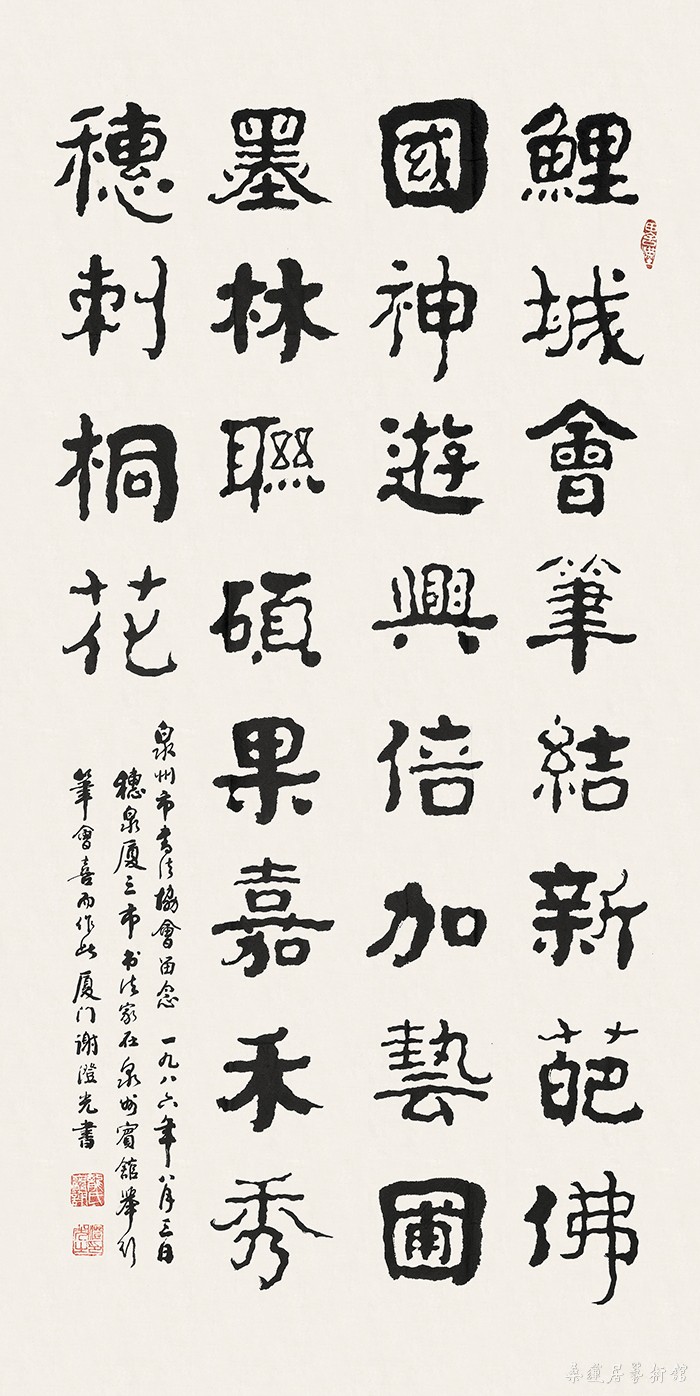 鯉城會筆結新葩佛
國神遊興倍加藝圃
墨林聯碩果嘉禾秀
穗刺桐花
泉州市书法協會留念 一九八六年八月三日
穗泉厦三市书法家在泉州賓舘舉行
筆會喜而作此厦门谢澄光書
桑蓮居藝術馆